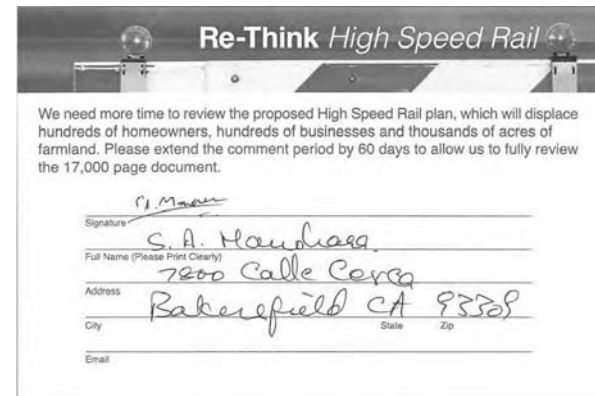 Re-Think High Speed Rail
We need more time to review the proposed High Speed Rail plan, which will displace
hundreds of homeowners, hundreds of businesses and thousands of acres of
farmland. Please extend the comment period by 60 days to allow us to fully review
the 17,000 page document.
Signature
S. A.
Full Name (Please Print Clearly)
7800 Calle Cerca
Address
Bakersfield CA 93309
City State Zip
Email